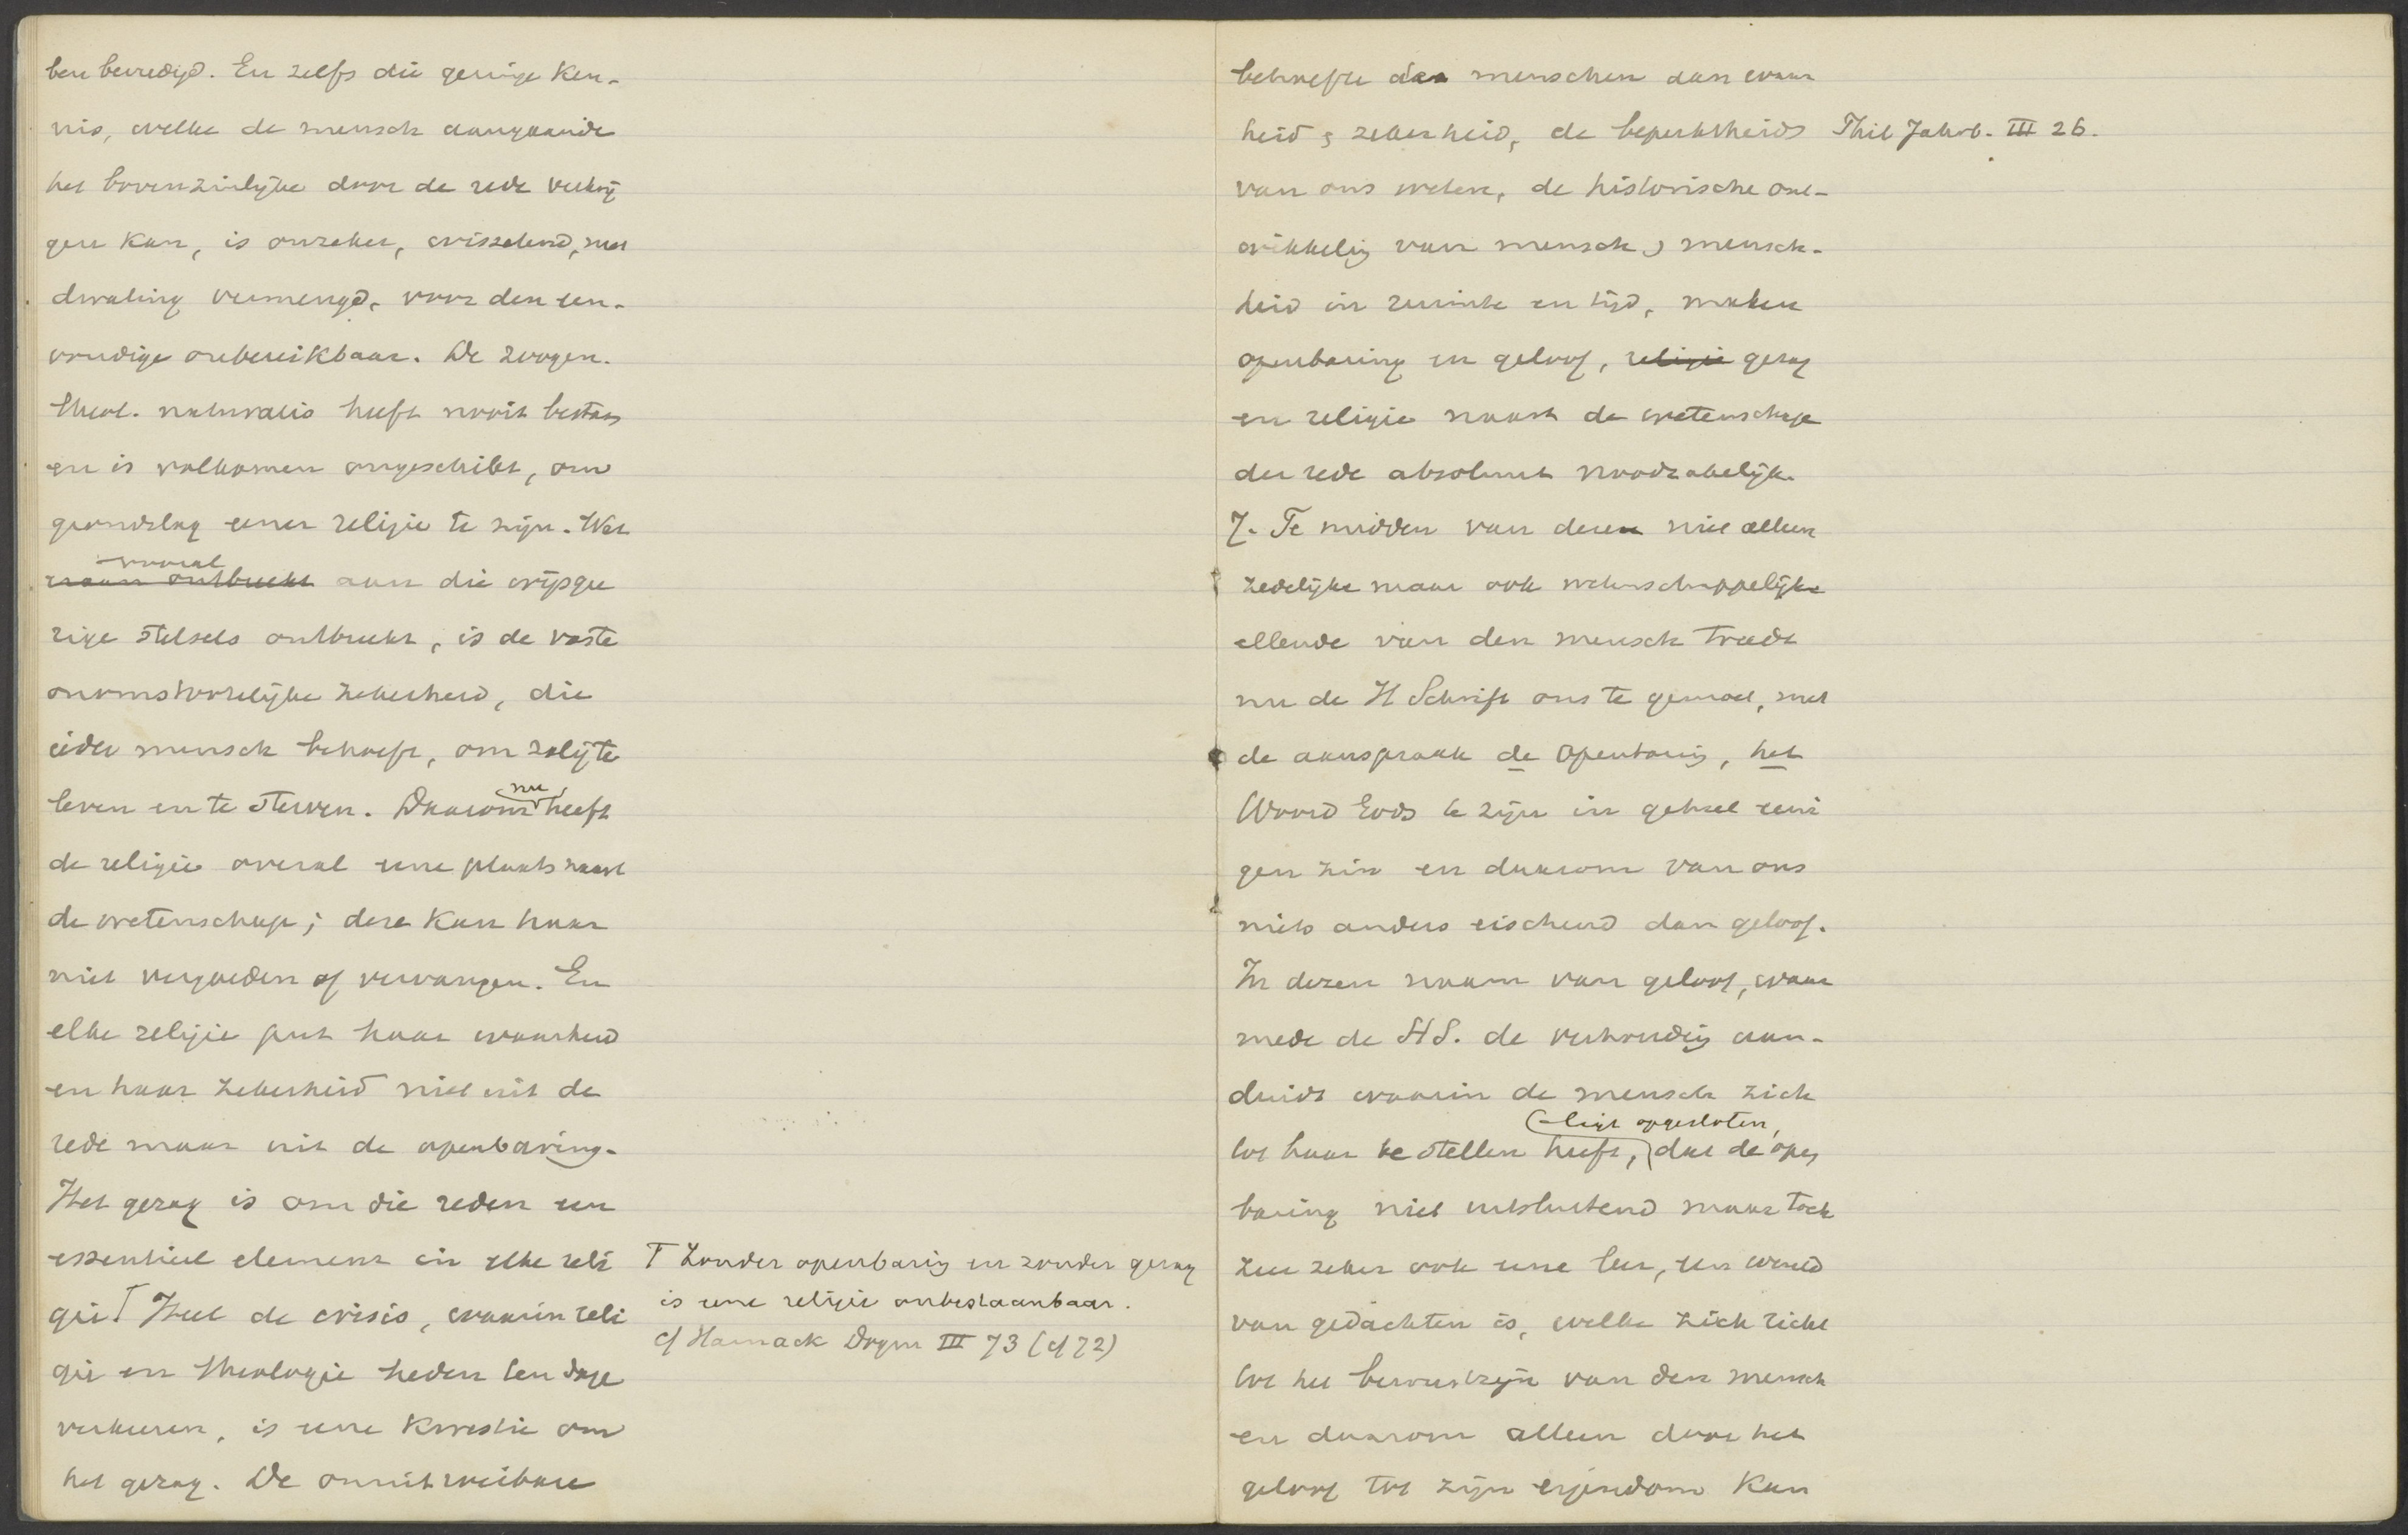 ben bevredigd. En zelfs die geringe ken-
nis, welke de mensch aangaande
het bovenzinlijke door de rede verkrij
gen kan, is onzeker, wisselend, met
dwaling vermengd, voor den een-
voudige onbereikbaar. De zoogen.
theol. naturalis heeft nooit bestaan
en is volkomen ongeschikt, om
grondslag eener religie te zijn. Wat
vooral
ontbreekt aan die wijsgee
rige stelsels ontbreekt, is de vaste
onomstootelijke zekerheid, die
ieder mensch behoeft, om zalig te
leven en te sterven. Daarom nu heeft
de religie overal eene plaats naast
de wetenschap; deze kan haar
niet vergoeden of vervangen. En
elke religie put haar waarheid
en haar zekerheid niet uit de
rede maar uit de openbaring.
Het gezag is om die reden een
essentieel element in elke reli
gie. Γ Heel de crisis, waarin reli
gie en theologie heden ten dage
verkeeren, is eene kwestie om
het gezag. De onuitroeibare
Γ Zonder openbaring en zonder gezag
is eene religie onbestaanbaar.
cf Harnack Dogm III 73 (cf 72)
behoefte des menschen aan waar
heid en zekerheid, de beperktheid
van ons weten, de historische ont-
wikkeling van mensch en mensch-
heid in ruimte en tijd, maken
openbaring en geloof, religie gezag
en religie naast de wetenschap
der rede absoluut noodzakelijk.
7. Te midden van deze niet alleen
zedelijke maar ook wetenschappelijke
ellende van den mensch treedt
nu de H Schrift ons te gemoet, met
de aanspraak de openbaring, het
Woord Gods te zijn in geheel eeni
gen zin en daarom van ons
niets anders eischend dan geloof.
In dezen naam van geloof, waar
mede de H S. de verhouding aan-
duidt waarin de mensch zich
ligt opgesloten,
tot haar te stellen heeft, dat de open
baring niet uitsluitend maar toch
zeer zeker ook eene leer, een wereld
van gedachten is, welke zich richt
tot het bewustzijn van den mensch
en daarom alleen door het
geloof tot zijn eigendom kan
Jahrb. III 26.